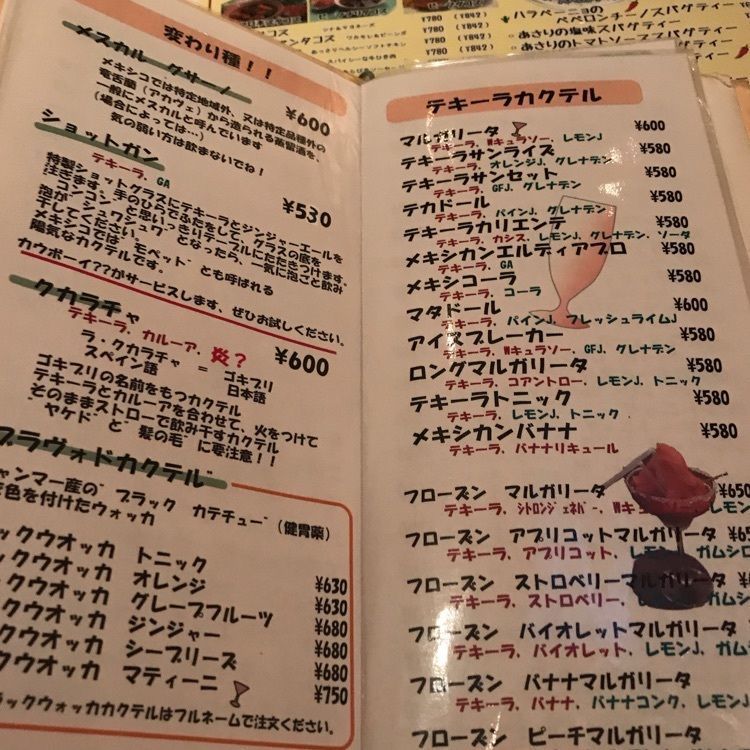 ¥780 (¥842)
¥780 (¥842)
¥780 (¥842)
ハラペーニョの
ペペロンチーノスパゲティー
あさりの塩味スパゲティー
あさりのトマトソーススパゲティー
変わり種！！
メスカル グサーノ ¥600
メキシコでは特定地域外、又は特定品種外の
竜舌蘭（アガヴェ）から造られる蒸留酒を、
一般にメスカルと呼んでいます
（場合によっては…）
気の弱い方は飲まないでね！
ショットガン ¥530
テキーラ、GA
特製ショットグラスにテキーラとジンジャーエールを
注ぎます。手のひらでふたをして、グラスの底を
コンコンと思いっきりテーブルにたたきつけます。
泡がシュワシュワ となったら、一気に泡ごと飲み
干してください。
メキシコでは"モペット"とも呼ばれる
陽気なカクテルです。
カウボーイ??がサービスします、ぜひお試しください。
クカラチャ ¥600
テキーラ、カルーア、炎？
ラ・クカラチャ ＝ ゴキブリ
スペイン語 日本語
ゴキブリの名前をもつカクテル
テキーラとカルーアを合わせて、火をつけて
そのままストローで飲み干すカクテル
"ヤケド"と"髪の毛"に要注意！！
ブラヴォドカクテル
ャンマー産の"ブラック カテチュー"（健胃薬）
色を付けたウォッカ
ックウオッカ トニック ¥630
ックウオッカ オレンジ ¥630
ックウオッカ グレープフルーツ ¥680
ックウオッカ ジンジャー ¥680
ックウオッカ シーブリーズ ¥680
クウオッカ マティーニ ¥750
ラックウォッカカクテルはフルネームで注文ください。
テキーラカクテル
マルガリータ ¥600
テキーラ、Wキュラソー、レモンJ
テキーラサンライズ ¥580
テキーラ、オレンジJ、グレナデン
テキーラサンセット ¥580
テキーラ、GFJ、グレナデン
テカドール ¥580
テキーラ、パインJ、グレナデン
テキーラカリエンテ ¥580
テキーラ、カシス、レモンJ、グレナデン、ソーダ
メキシカンエルディアブロ ¥580
テキーラ、GA
メキシコーラ ¥580
テキーラ、コーラ
マタドール ¥600
テキーラ、パインJ、フレッシュライムJ
アイスブレーカー ¥580
テキーラ、Wキュラソー、GFJ、グレナデン
ロングマルガリータ ¥580
テキーラ、コアントロー、レモンJ、トニック
テキーラトニック ¥580
テキーラ、レモンJ、トニック
メキシカンバナナ ¥580
テキーラ、バナナリキュール
フローズン マルガリータ ¥650
テキーラ、シトロンジェネバー、Wキュ
フローズン アプリコットマルガリータ
テキーラ、アプリコット、レモンJ、ガムシロ
フローズン ストロベリーマルガリータ
テキーラ、ストロベリー、
フローズン バイオレットマルガリータ
テキーラ、バイオレット、レモンJ、ガムシ
フローズン バナナマルガリータ
テキーラ、バナナ、バナナコンク、レモンJ
フローズン ピーチマルガリータ